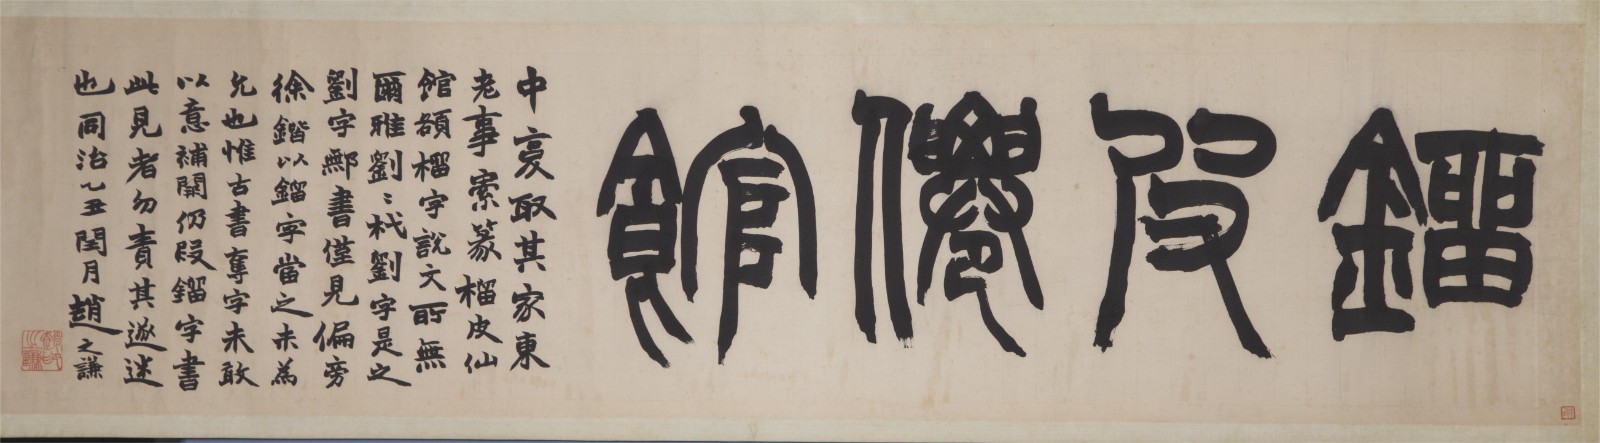 鎦皮僊館
中复取其家東
老事索篆榴皮仙
館額榴字說文所無
爾雅劉〻杙劉字是之
劉字鄦書僅見偏旁
徐鍇以鎦字當之未為
允也惟古書奪字未敢
以意補闕仍叚鎦字書
此見者勿責其遂迷
也同治乙丑閏月趙之謙